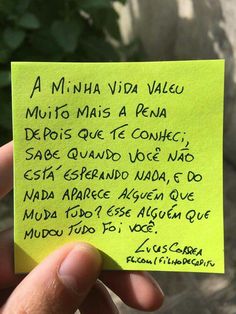 A MINHA VIDA VALEU
MUITO MAIS A PENA
DEPOIS QUE TE CONHECI;
SABE QUANDO VOCÊ NÃO
ESTÁ ESPERANDO NADA, E DO
NADA APARECE ALGUÉM QUE
MUDA TUDO? ESSE ALGUÉM QUE
MUDOU TUDO FOI VOCÊ.
LUCAS CORREA
FB.COM/FILHODECAPITU